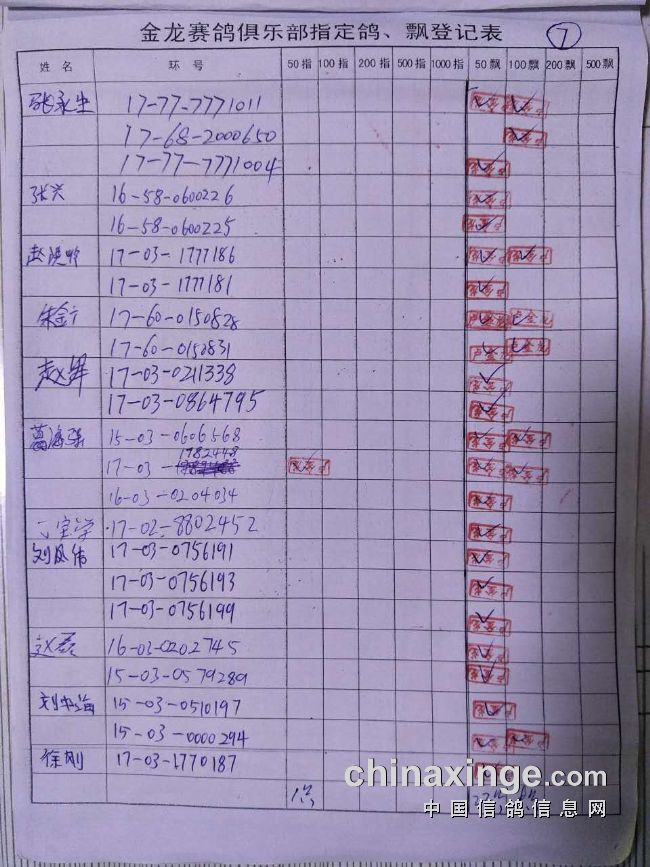 金龙赛鸽俱乐部指定鸽、飘登记表 7
姓名 环号 50指 100指 200指 500指 1000指 50飘 100飘 200飘 500飘
张永生 17-77-7771011
17-68-2000650
17-77-7771004
张兴 16-58-0600226
16-58-0600225
17-03-1777186
17-03-1777181
朱金广 17-60-0150828
17-60-0150831
17-03-0211338
17-03-0864795
15-03-0606568
17-03-1982448
16-03-0204034
17-02-8802452
刘凤伟 17-03-0756191
17-03-0756193
17-03-0756199
赵磊 16-03-0202745
15-03-0579289
15-03-0510197
15-03-0000294
徐刚 17-03-1770187
chinaxinge.com
中国信鸽信息网